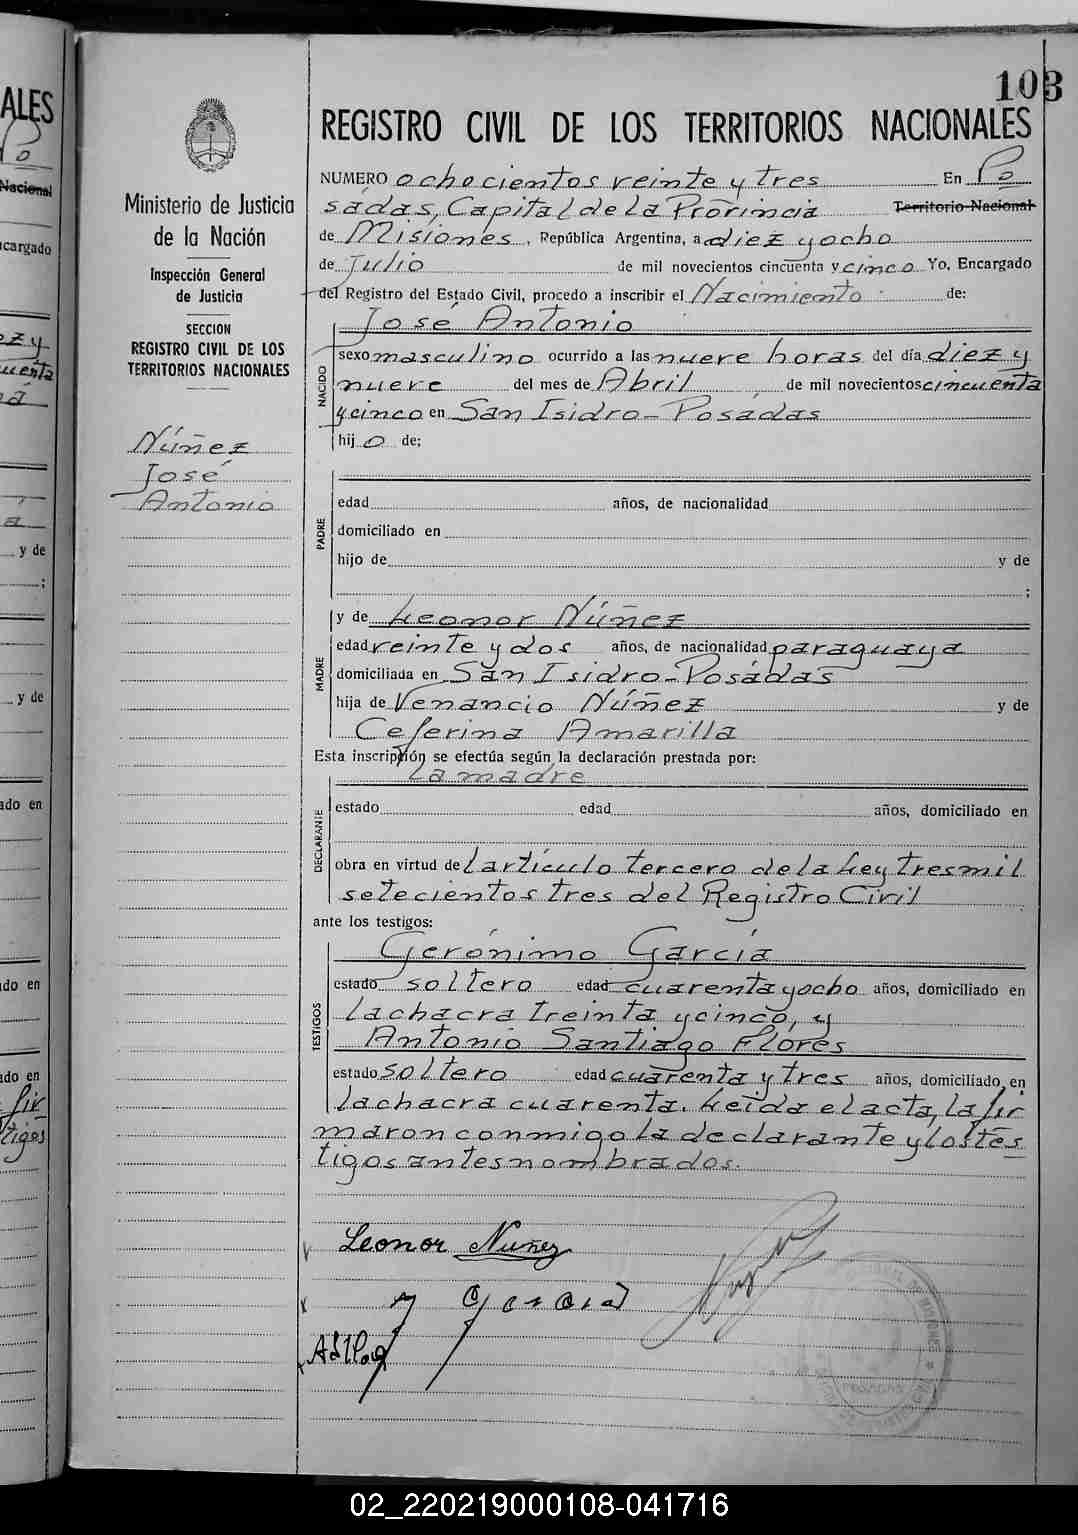 103
ALES
Po
Nacional
encargado
ez y
cuenta
y de
;
y de
ado en
ado en
ado en
fir
tigos
Ministerio de Justicia
de la Nación
Inspección General
de Justicia
SECCION
REGISTRO CIVIL DE LOS
TERRITORIOS NACIONALES
Núñez
José
Antonio
REGISTRO CIVIL DE LOS TERRITORIOS NACIONALES
NUMERO ochocientos veinte y tres En Po
sádas, Capital de la Provincia Territorio Nacional
de Misiones, República Argentina, a diez y ocho
de Julio de mil novecientos cincuenta y cinco Yo, Encargado
del Registro del Estado Civil, procedo a inscribir el Nacimiento de:
José Antonio
NACIDO
sexo masculino ocurrido a las nueve horas del día diez y
nueve del mes de Abril de mil novecientos cincuenta
y cinco en San Isidro - Posádas
hijo de:
PADRE
edad años, de nacionalidad
domiciliado en
hijo de y de
;
MADRE
y de Leonor Núñez
edad veinte y dos años, de nacionalidad paraguaya
domiciliada en San Isidro - Posádas
hija de Venancio Núñez y de
Ceferina Amarilla
Esta inscripción se efectúa según la declaración prestada por:
La madre
DECLARANTE
estado edad años, domiciliado en
obra en virtud del artículo tercero de la Ley tres mil
setecientos tres del Registro Civil
ante los testigos:
TESTIGOS
Gerónimo García
estado soltero edad cuarenta y ocho años, domiciliado en
la chacra treinta y cinco, y
Antonio Santiago Flores
estado soltero edad cuarenta y tres años, domiciliado en
la chacra cuarenta. Leída el acta, la fir
maron conmigo la declarante y los tes
tigos antes nombrados.
Leonor Nuñez
y Garcia
POSADAS
02_220219000108-041716